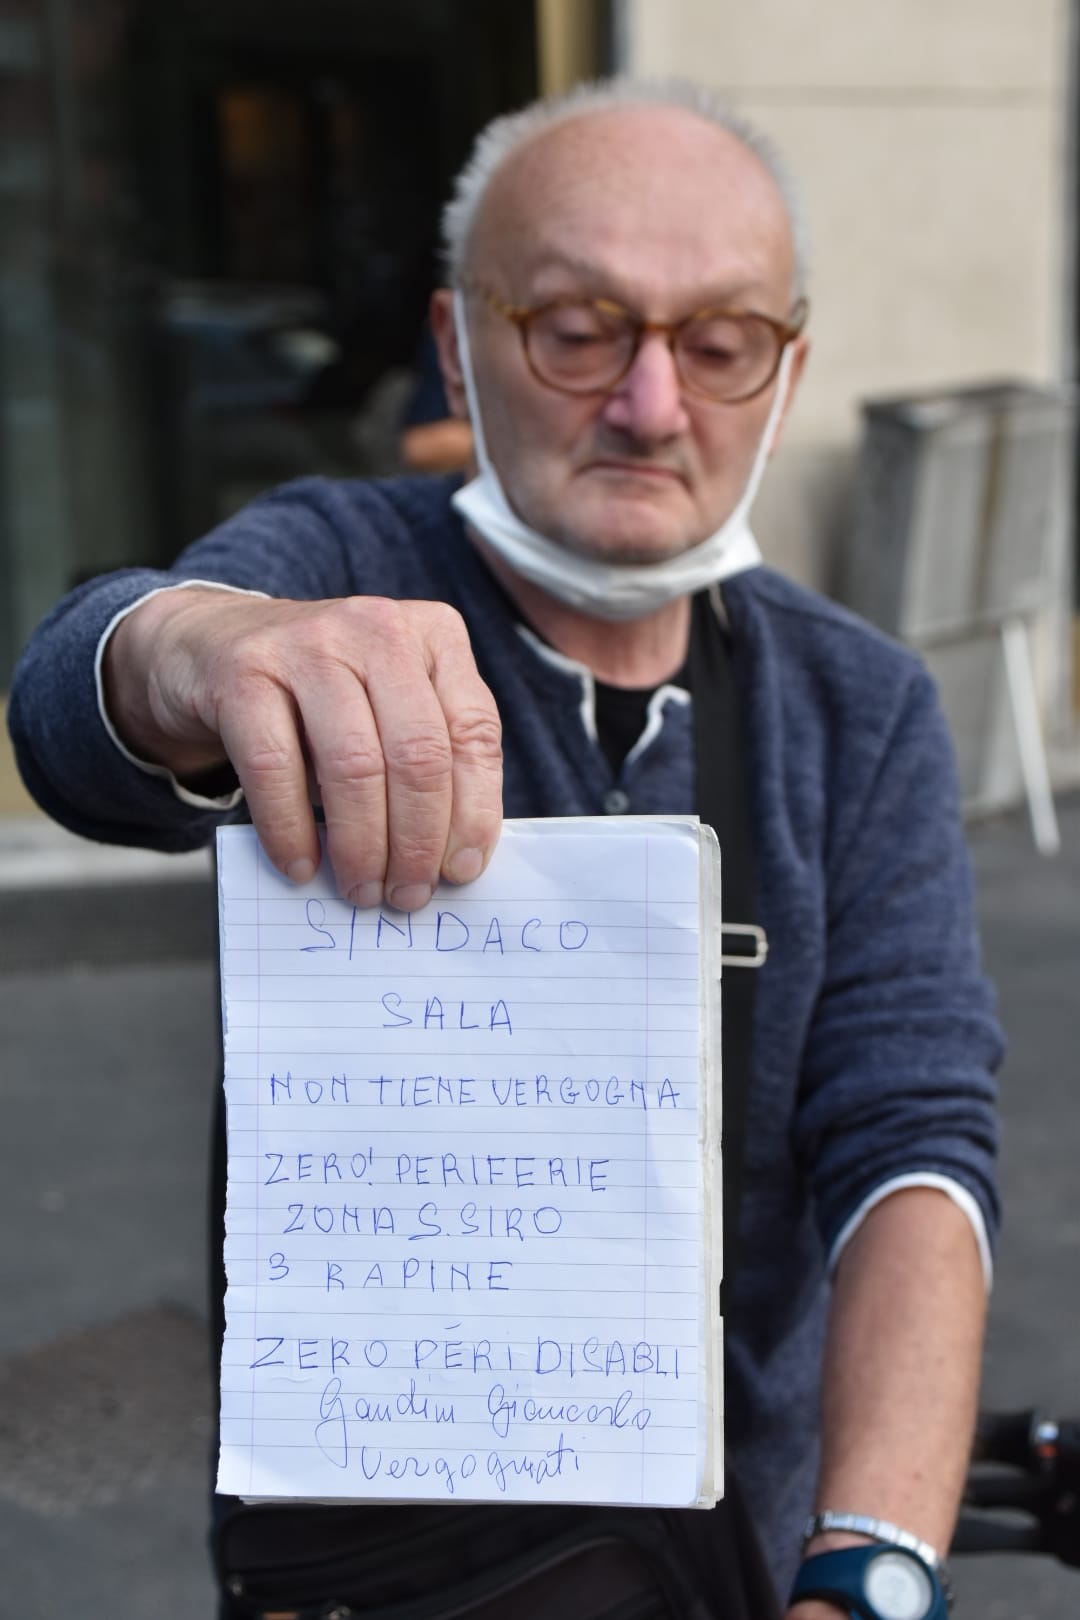 SINDACO
SALA
NON TIENE VERGOGNA
ZERO! PERIFERIE
ZONA S.SIRO
3 RAPINE
ZERO PÉRI DISABLI
Gaudini Giancarlo
Vergognati